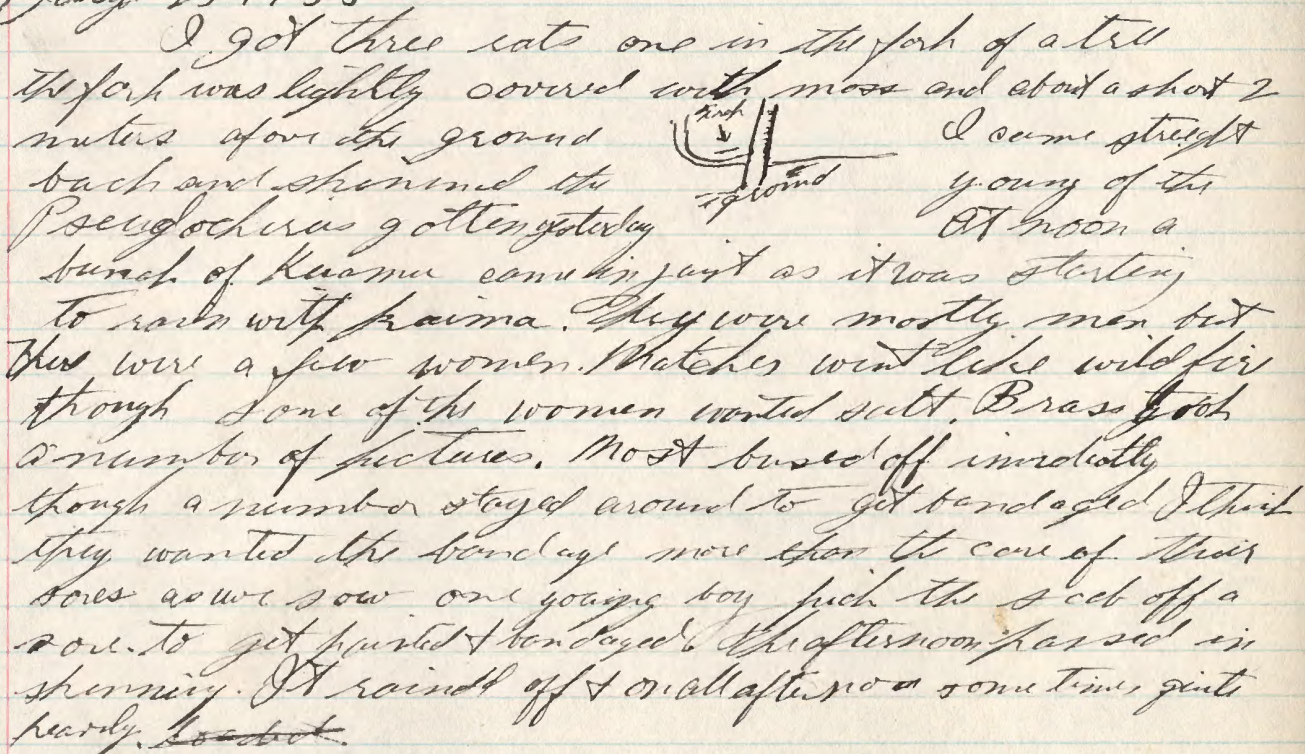 I got three rats one in the fork of a tree
the fork was lightly covered with moss and about a short 2
meters above the ground I came streight
back and skinned the young of the
Pseudochirus gotten yesterday At noon a
bunch of came in just as it was starting
to rain with kaima. They were mostly men but
ther were a few women. Matches went like wild fire
though some of the women wanted salt. Brass took
a number of pictures. Most off imediatly
though a number stayed around to get bandaged I think
they wanted the bandage more than the care of their
sores as we saw one young boy pick the scab off a
sore to get painted & bandaged. The afternoon passed in
skinning. It raind off & on all afternoon some times quite
heavily.
ground